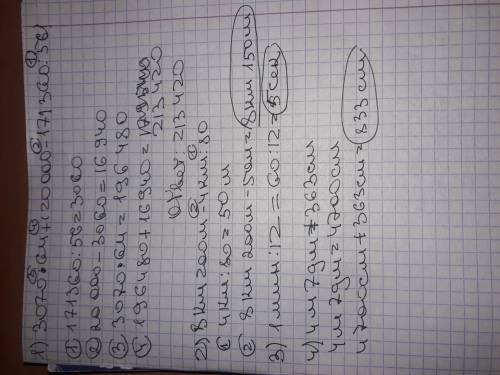 1) 3070·64+(20000-171360:56)
① 171360:56=3060
② 20 000-3060=16 940
③ 3070·64=196 480
④ 196480+16940=
213 420
Ответ 213 420
2) 8 км 200м-4км:80
① 4км:80=50м
② 8 км 200м-50м=8км 150м
3) 1 мин:12=60:12=5сек
4) 4м 7дм+363см
4м 7дм=4700см
4700см+363см=833см